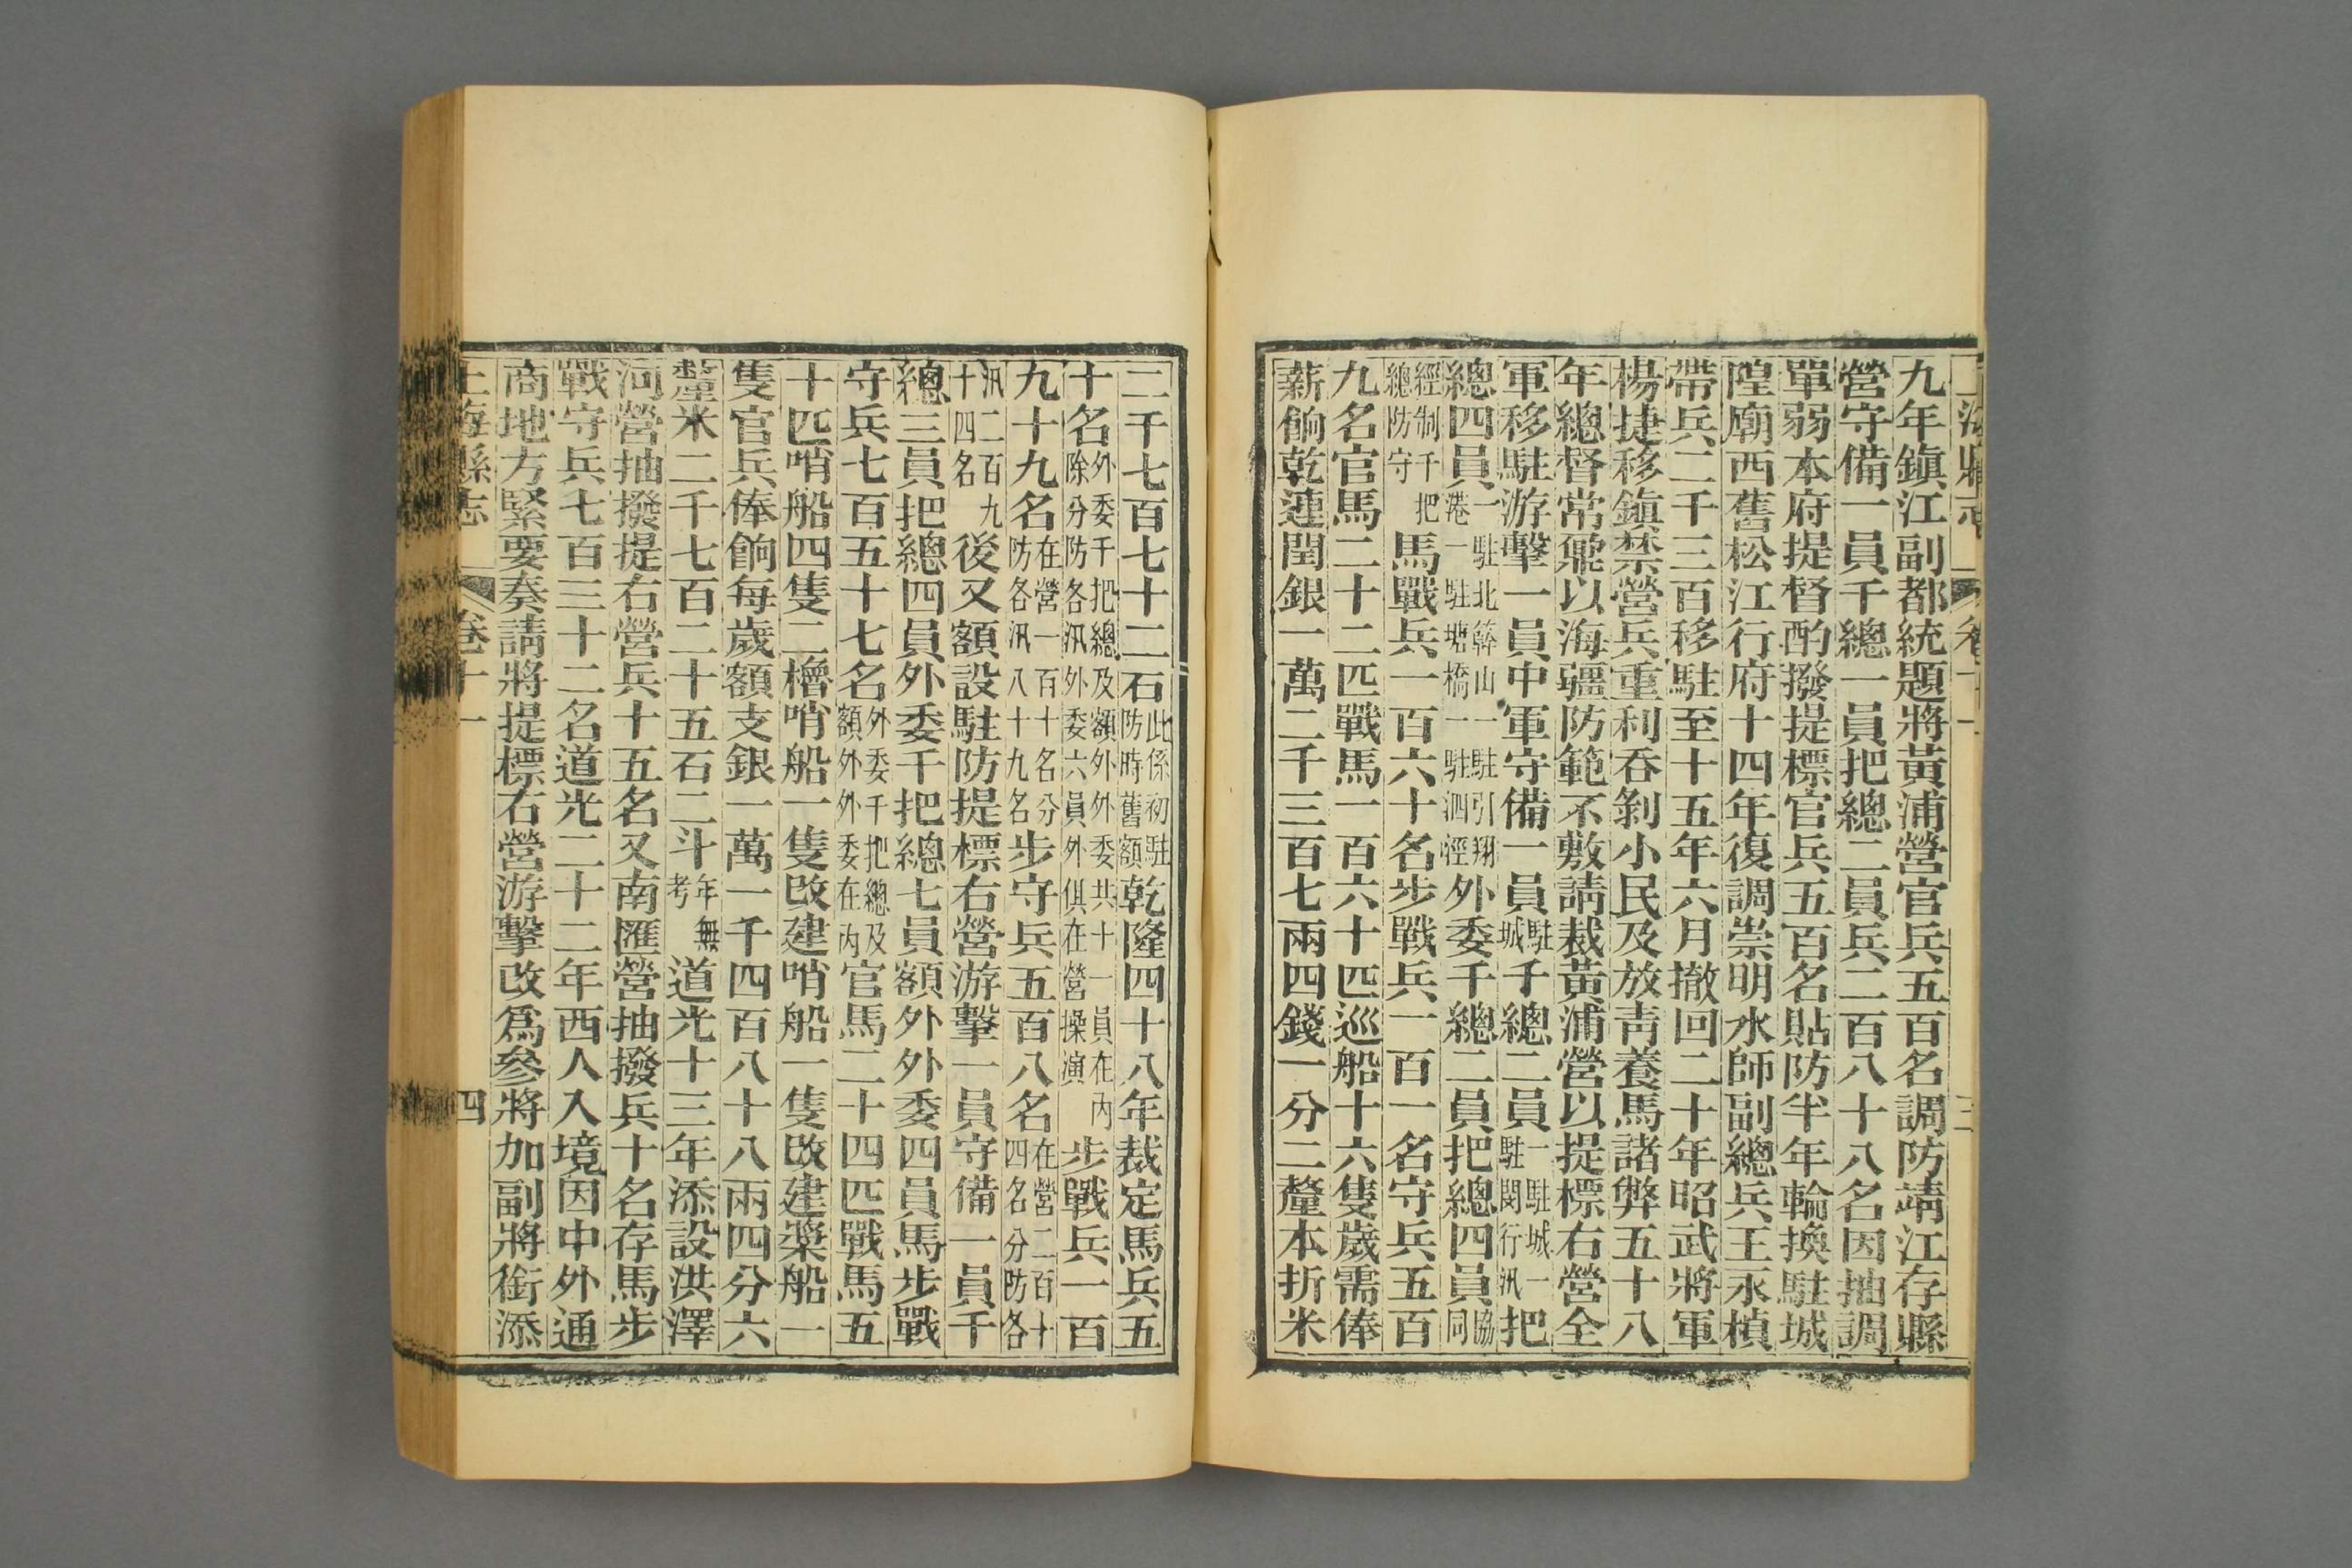 上海縣志 卷十一 三
九年鎭江副都統題將黃浦營官兵五百名調防靖江存縣
營守備一員千總一員把總二員兵二百八十八名因抽調
單弱本府提督酌撥提標官兵五百名貼防半年輪換駐城
隍廟西舊松江行府十四年復調崇明水師副總兵王永楨
帶兵二千三百移駐至十五年六月撤回二十年昭武將軍
楊捷移鎭禁營兵重利吞剝小民及放靑養馬諸弊五十八
年總督常鼐以海疆防範不敷請裁黃浦營以提標右營全
軍移駐游擊一員中軍守備一員駐城千總二員一駐城一駐閔行汛把
總四員一駐北簳山一駐引翔港一駐塘橋一駐泗涇外委千總二員把總四員協同
經制千把總防守馬戰兵一百六十名步戰兵一百一名守兵五百
九名官馬二十二匹戰馬一百六十匹巡船十六隻歲需俸
薪餉乾連閏銀一萬二千三百七兩四錢一分二釐本折米
二千七百七十二石此係初駐防時舊額乾隆四十八年裁定馬兵五
十名外委千把總及額外外委共十一員在內除分防各汛外委六員外俱在營操演步戰兵一百
九十九名在營一百十名分防各汛八十九名步守兵五百八名在營二百十四名分防各
汛二百九十四名後又額設駐防提標右營游擊一員守備一員千
總三員把總四員外委千把總七員額外外委四員馬步戰
守兵七百五十七名外委千把總及額外外委在內官馬二十四匹戰馬五
十匹哨船四隻二櫓哨船一隻改建哨船一隻改建槳船一
隻官兵俸餉每歲額支銀一萬一千四百八十八兩四分六
釐米二千七百二十五石二斗年無考道光十三年添設洪澤
河營抽撥提右營兵十五名又南匯營抽撥兵十名存馬步
戰守兵七百三十二名道光二十二年西人入境因中外通
商地方緊要奏請將提標右營游擊改爲參將加副將銜添
上海縣志 卷十一 四